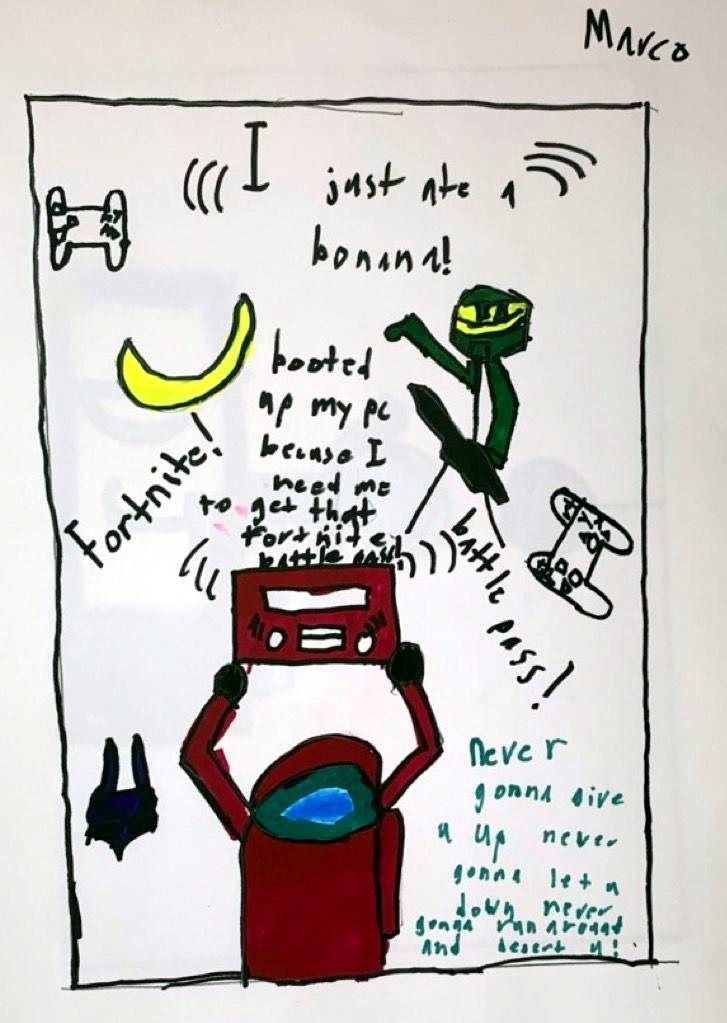 Marco
I just ate a
bonana!
booted
up my pc
because I
need me
to get that
fortnite
battle pass!
Fortnite!
battle pass!
never
gonna give
u up never
gonna let u
down never
gonna run around
and desert u!